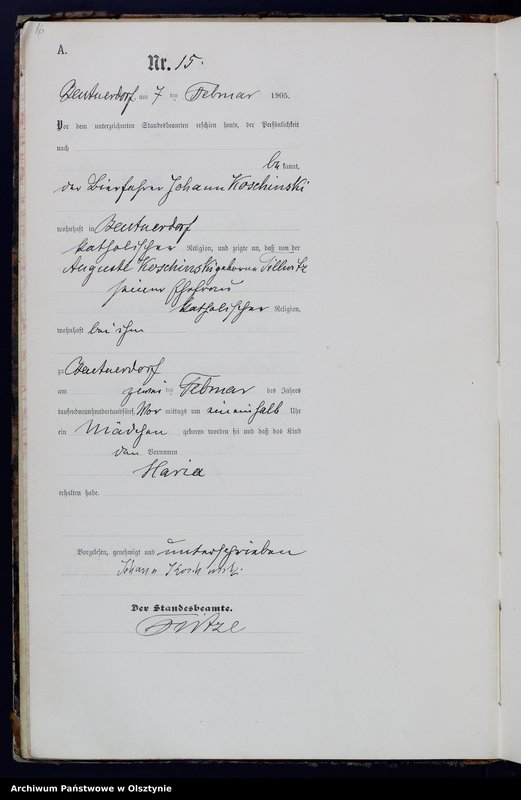 16
A.
Nr. 15.
Beutnerdorf, am 7 ten Februar 1905.
Vor dem unterzeichneten Standesbeamten erschien heute, der Persönlichkeit
nach
be kannt,
der Bierfahrer Johann Koschinski
wohnhaft in Beutnerdorf
katholischer Religion, und zeigte an, daß von der
Auguste Koschinski geborene
seiner Ehefrau
katholischer Religion,
wohnhaft bei ihm
zu Beutnerdorf
am zwei ten Februar des Jahres
tausendneunhundertundfünf, Vor mittags um ein einhalb Uhr
ein Mädchen geboren worden sei und daß das Kind
den Vornamen
Maria
erhalten habe.
Vorgelesen, genehmigt und unterschrieben
Johann Koschinski.
Der Standesbeamte.
Archiwum Państwowe w Olsztynie